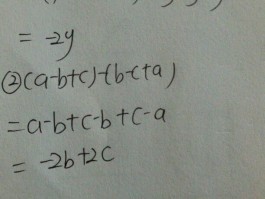 = -2y
②(a-b+c)-(b-c+a)
=a-b+c-b+c-a
= -2b+2c